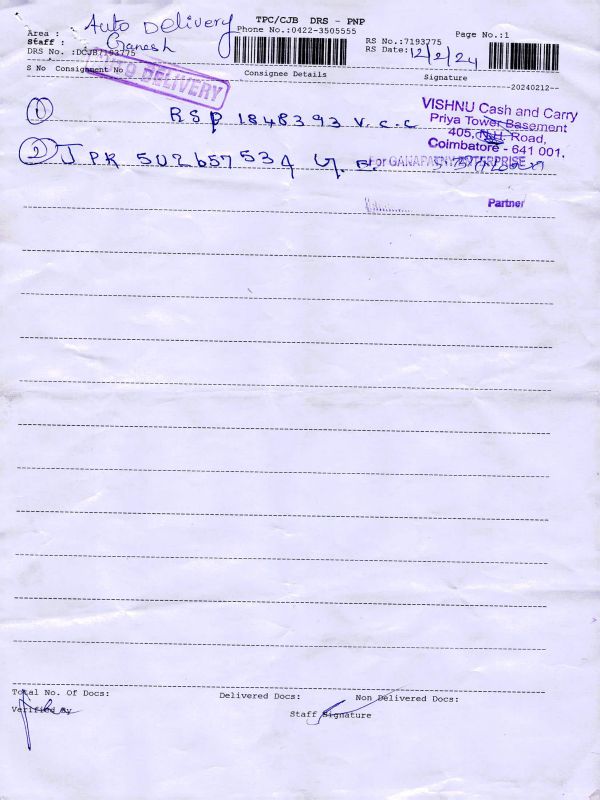 TPC/CJB DRS - PNP
Area : Auto Delivery
Phone No.:0422-3505555
Page No.:1
Staff : Ganesh
RS No.:7193775
DRS No. :DCJB7193775
RS Date: 12/2/24
AUTO DELIVERY
S No Consignment No
Consignee Details
Signature
--20240212--
1 RSP 1848393 V.C.C
VISHNU Cash and Carry
Priya Tower Basement
405, N.H. Road,
Coimbatore - 641 001.
2 JPR 502657534
For GANAPATHY ENTERPRISE
Partner
Total No. Of Docs:
Delivered Docs:
Non Delivered Docs:
Verified By
Staff Signature